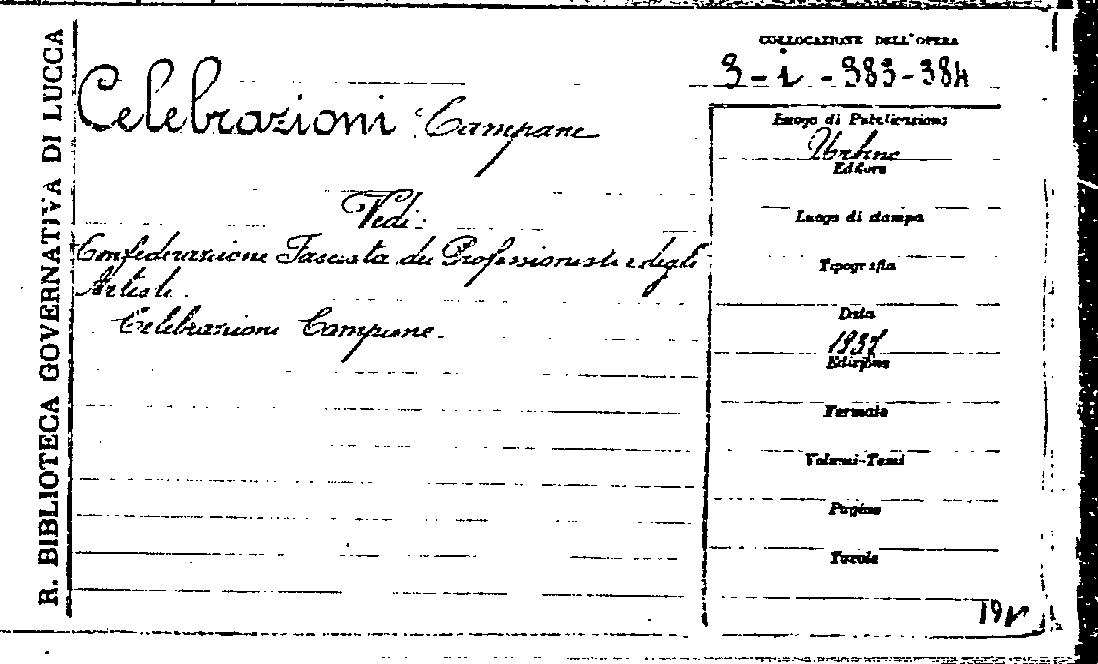 R. BIBLIOTECA GOVERNATIVA DI LUCCA
Celebrazioni Campane
Vedi:
Confederazione Fascista dei Professionisti e degli
Artisti.
Celebrazioni Campane.
COLLOCAZIONE DELL'OPERA
3-i-383-384
Luogo di Pubblicazione
Urbino
Editore
Luogo di stampa
Tipografia
Data
Edizione
Formato
Volumi-Tomi
Pagine
Tavole